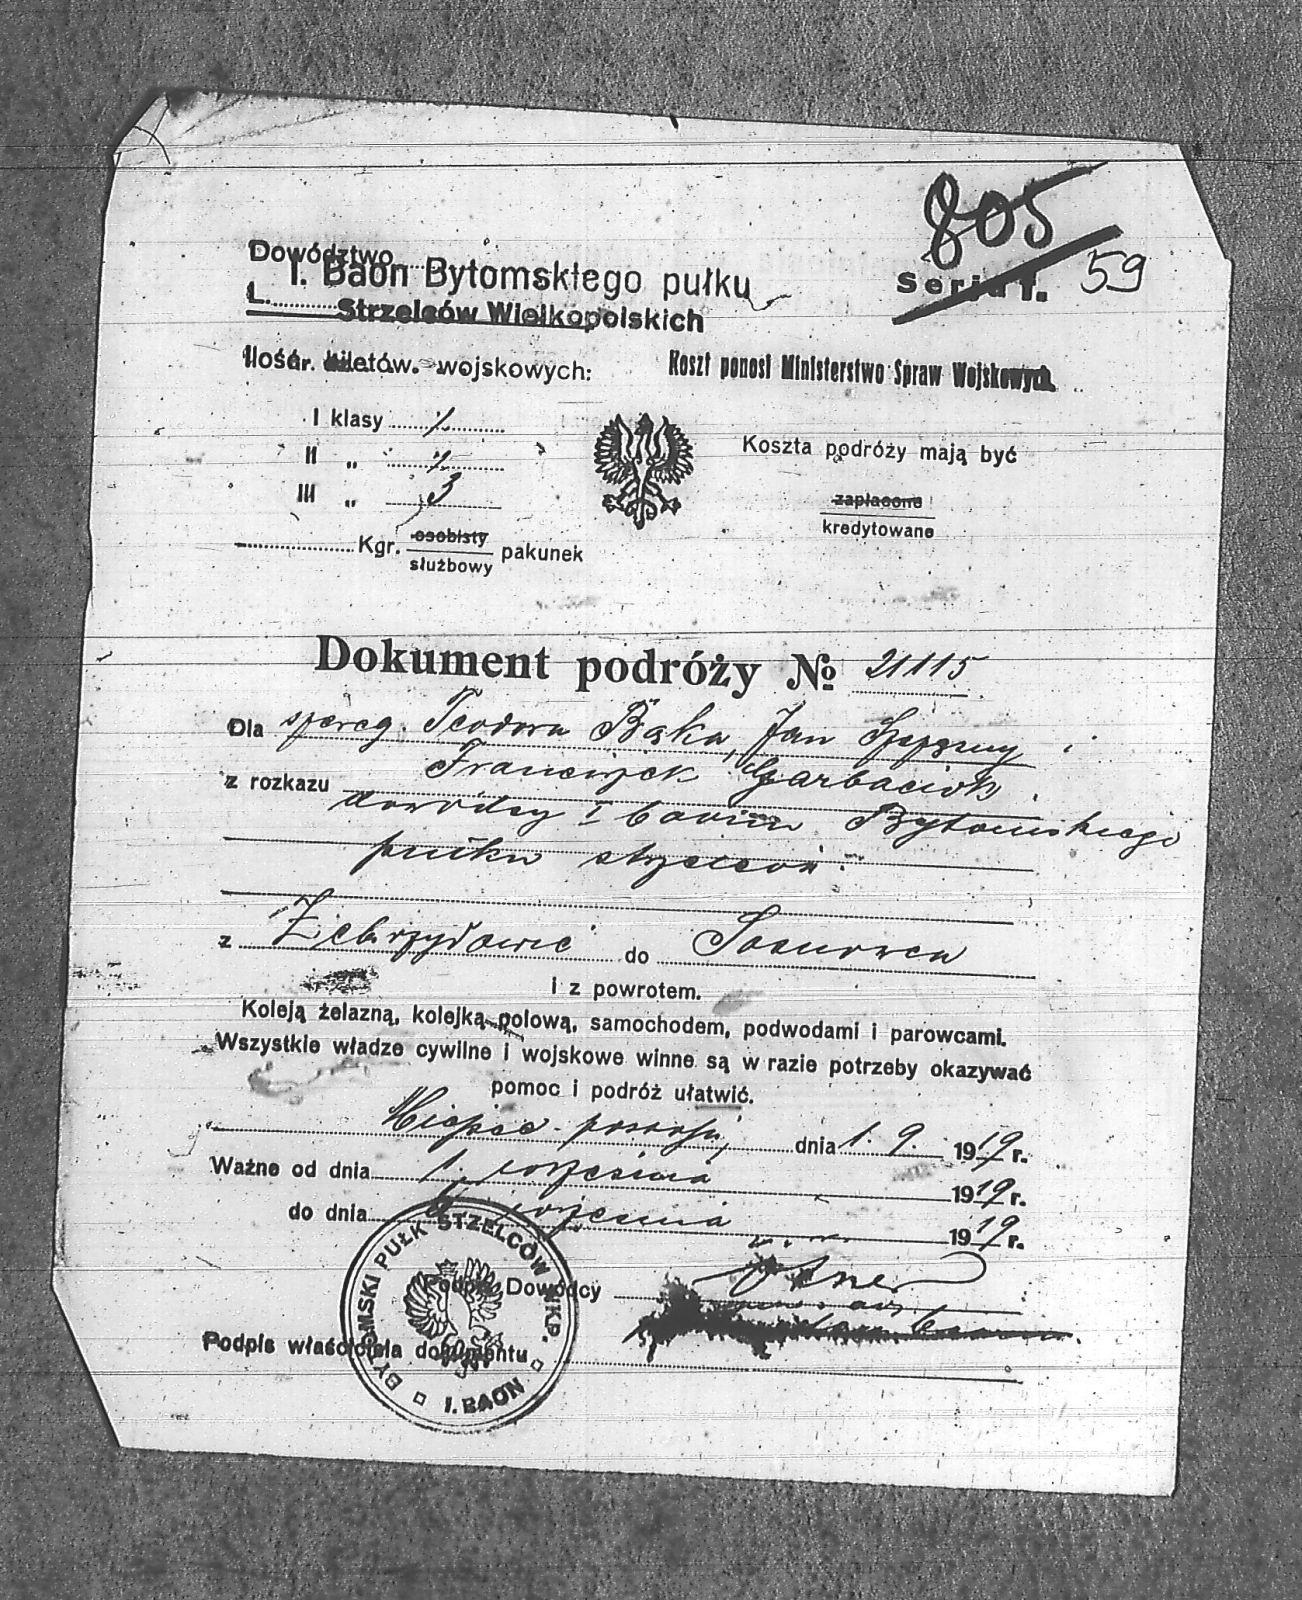 805
59
Dowództwo
I. Baon Bytomskiego pułku
Serja I.
L.
Strzelców Wielkopolskich
Ilość biletów wojskowych:
Koszt ponosi Ministerstwo Spraw Wojskowych.
I klasy
II „
III „ 3
Koszta podróży mają być
zapłacone
kredytowane
Kgr. osobisty
służbowy pakunek
Dokument podróży № 21115
Dla szereg. Teodora Bąka, Jan i
Franciszek Garbaciok
z rozkazu
dowódcy I baonu Bytomskiego
pułku strzelców.
z Zebrzydowic do Sosnowca
i z powrotem.
Koleją żelazną, kolejką polową, samochodem, podwodami i parowcami.
Wszystkie władze cywilne i wojskowe winne są w razie potrzeby okazywać
pomoc i podróż ułatwić.
Miejsce postoju, dnia 1. 9. 1919 r.
Ważne od dnia 1. września 1919 r.
do dnia września 1919 r.
Podpis Dowódcy
Podpis właściciela dokumentu
BYTOMSKI PUŁK STRZELCÓW WKP.
I. BAON